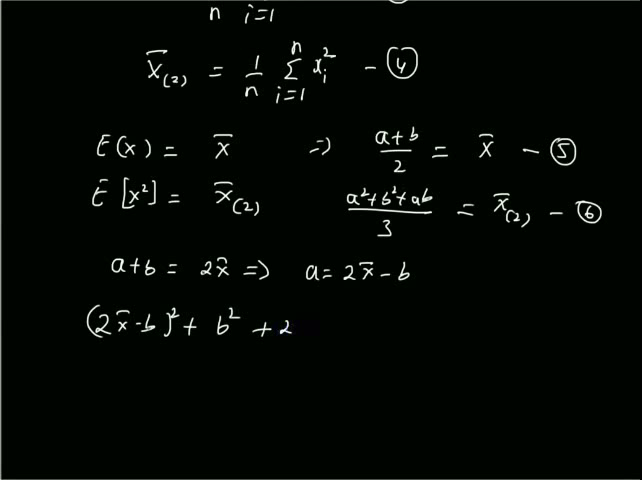 n i=1
x̄₍₂₎ = 1/n Σⁿᵢ₌₁ xᵢ² – ④
E(x) = x̄ ⇒ (a+b)/2 = x̄ – ⑤
E[x²] = x̄₍₂₎ (a²+b²+ab)/3 = x̄₍₂₎ – ⑥
a+b = 2x̄ ⇒ a = 2x̄ - b
(2x̄-b)² + b² + 2